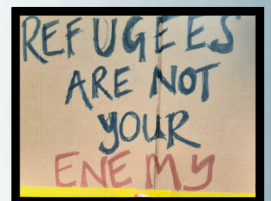 REFUGEES
ARE NOT
YOUR
ENEMY